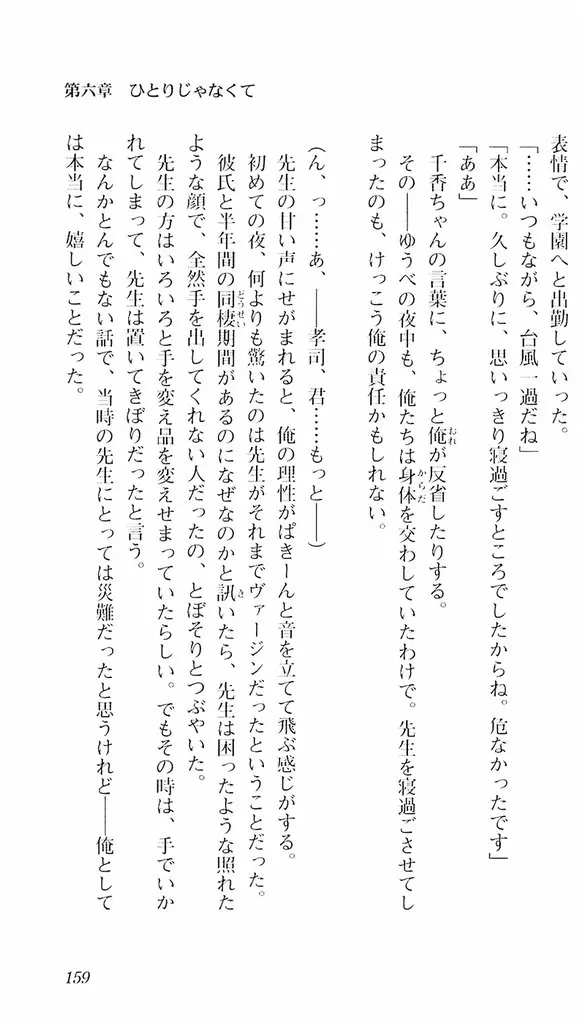 第六章　ひとりじゃなくて
表情で、学園へと出勤していった。
「……いつもながら、台風一過だね」
「本当に。久しぶりに、思いっきり寝過ごすところでしたからね。危なかったです」
「ああ」
千香ちゃんの言葉に、ちょっと俺が反省したりする。
その――ゆうべの夜中も、俺たちは身体を交わしていたわけで。先生を寝過ごさせてし
まったのも、けっこう俺の責任かもしれない。
（ん、っ……あ、――孝司、君……もっと――）
先生の甘い声にせがまれると、俺の理性がぱきーんと音を立てて飛ぶ感じがする。
初めての夜、何よりも驚いたのは先生がそれまでヴァージンだったということだった。
彼氏と半年間の同棲期間があるのになぜなのかと訊いたら、先生は困ったような照れた
ような顔で、全然手を出してくれない人だったの、とぼそりとつぶやいた。
先生の方はいろいろと手を変え品を変えせまっていたらしい。でもその時は、手でいか
れてしまって、先生は置いてきぼりだったと言う。
なんかとんでもない話で、当時の先生にとっては災難だったと思うけれど――俺として
は本当に、嬉しいことだった。
159